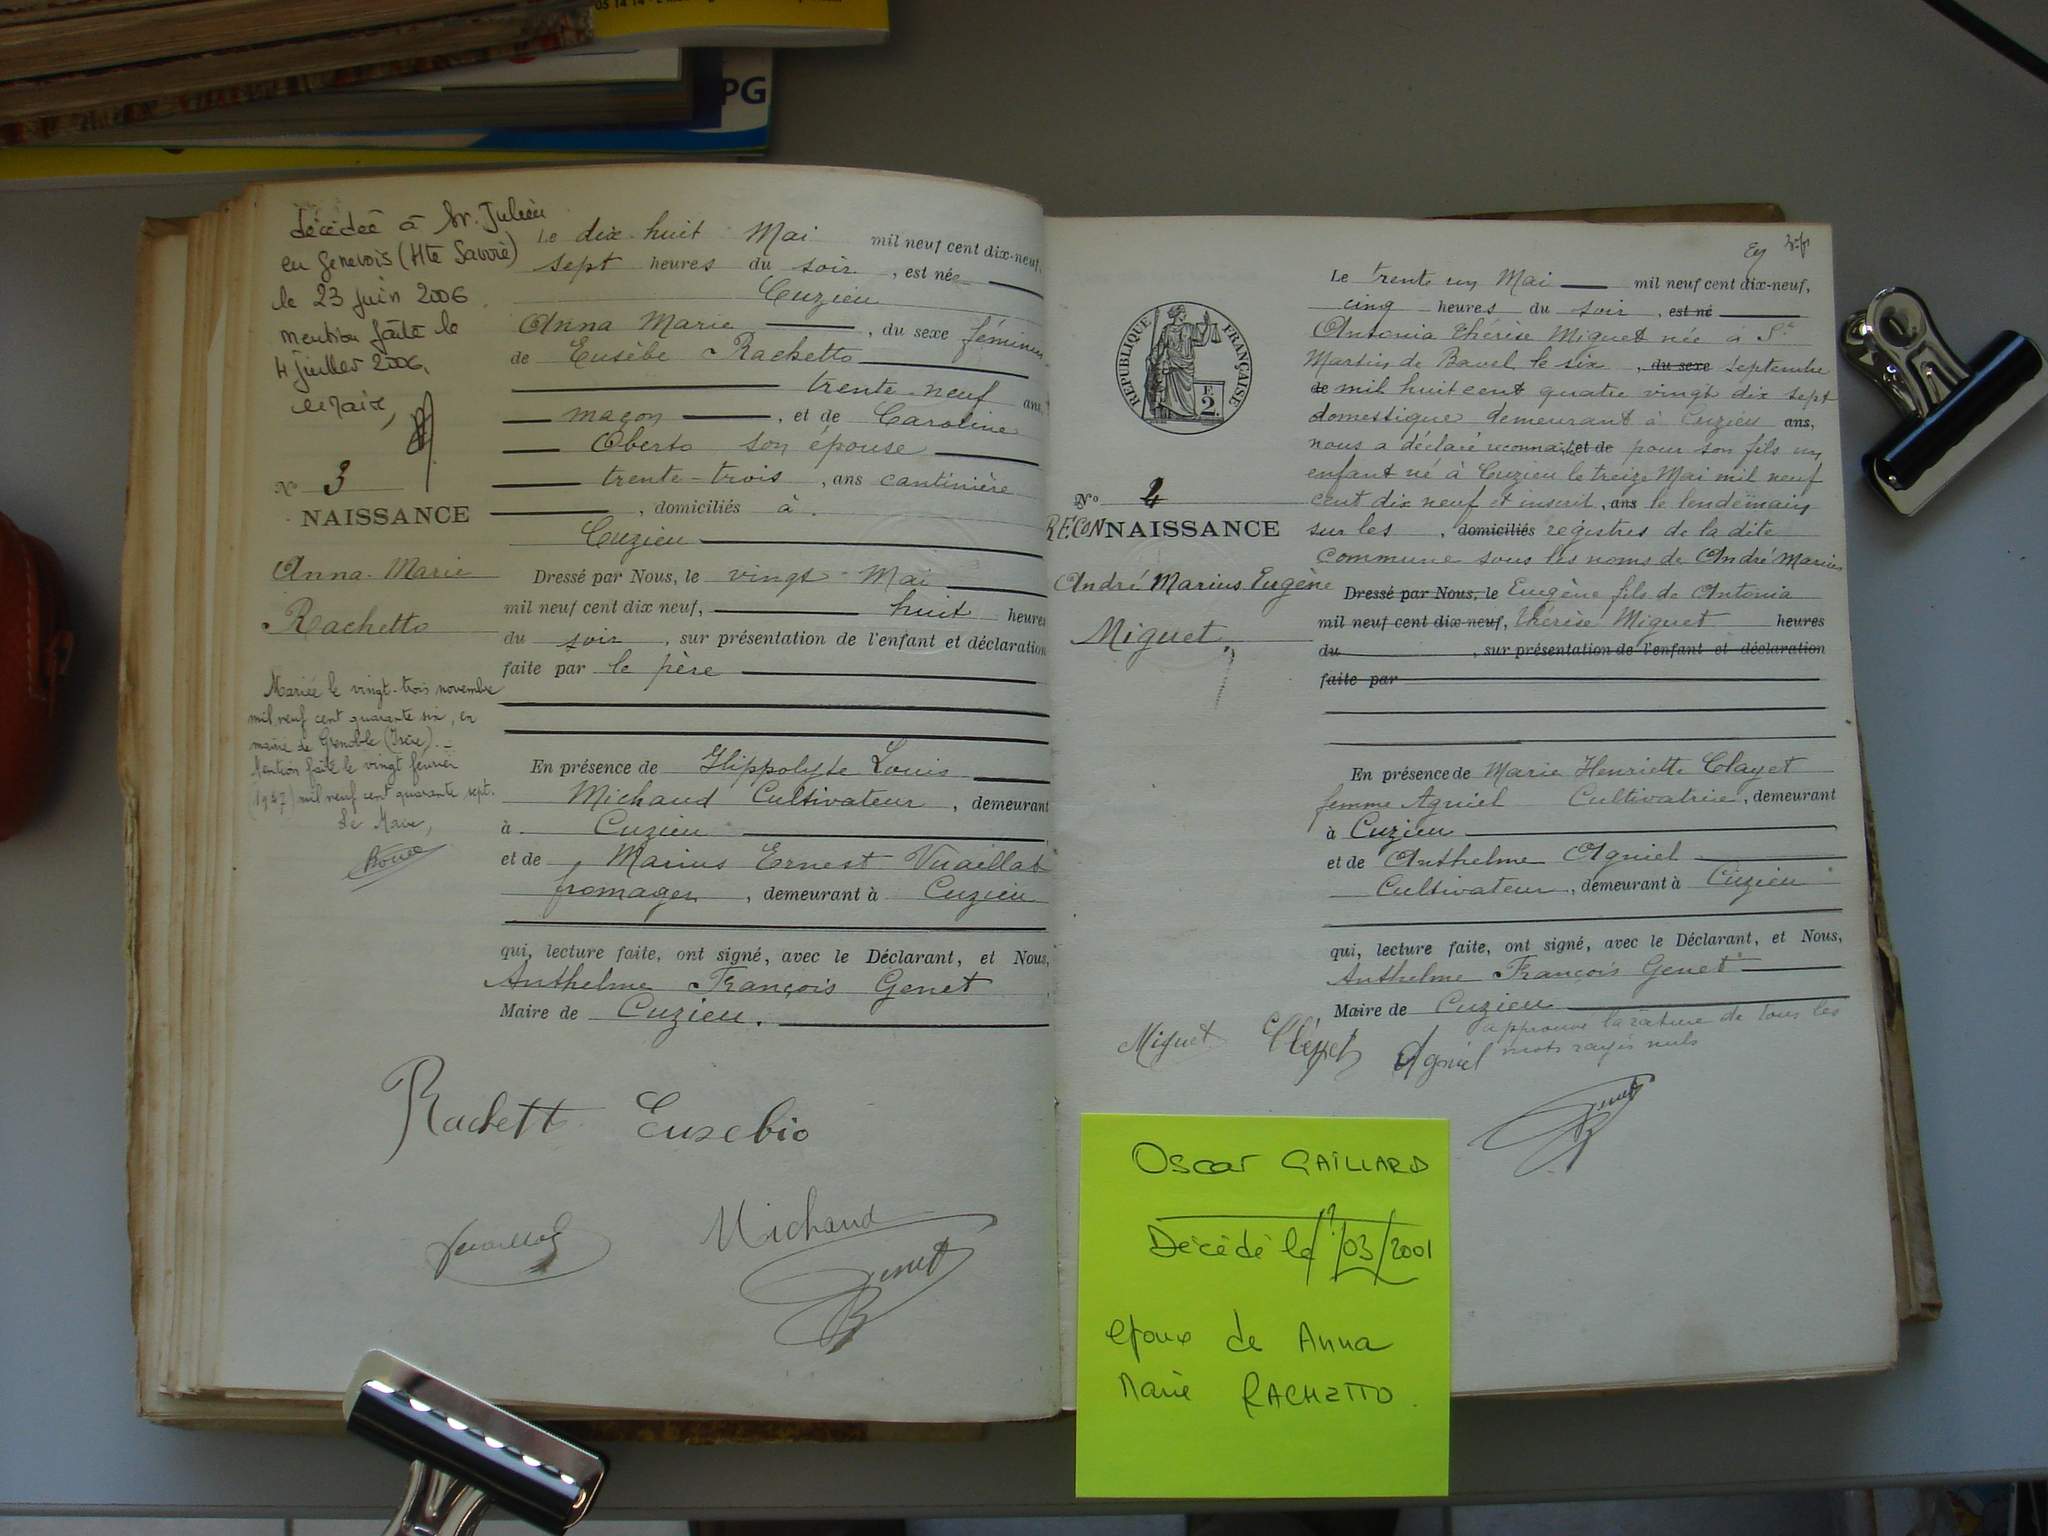 PG
décédée à St. Julien
en Genevois (Hte Savoie)
le 23 juin 2006.
mention faite le
4 juillet 2006.
Le Maire,
No 3
NAISSANCE
Anna-Marie
Rachetto
Mariée le vingt-trois novembre
mil neuf cent quarante six, en
mairie de Grenoble (Isère). _
Mention faite le vingt fevrier
(1947) mil neuf cent quarante sept.
Le Maire,
Le dix-huit Mai mil neuf cent dix-neuf,
sept heures du soir, est née
Cuzieu
Anna Marie, du sexe féminin
de Eusèbe Rachetto
trente-neuf ans,
maçon, et de Caroline
Oberto son épouse
trente-trois, ans cantinière
, domiciliés à.
Cuzieu
Dressé par Nous, le vingt Mai
mil neuf cent dix neuf, huit heures
du soir, sur présentation de l'enfant et déclaration
faite par le père
En présence de Hippolyte Louis
Michaud Cultivateur, demeurant
à Cuzieu
et de Marius Ernest Vuaillat
fromager, demeurant à Cuzieu
qui, lecture faite, ont signé, avec le Déclarant, et Nous,
Anthelme François Genet
Maire de Cuzieu.
Rachett Eusebio
Vuaillat Michaud
Genet
RÉPUBLIQUE FRANÇAISE
E
2.
No 4
RECONNAISSANCE
André Marius Eugène
Miguet
Le trente un Mai mil neuf cent dix-neuf,
cinq heures du soir, est né
Antonia Thérèse Miguet née à St
Martin de Bavel le six, du sexe Septembre
de mil huit cent quatre vingt dix sept
domestique demeurant à Cuzieu ans,
nous a déclaré reconnaitre et de pour son fils un
enfant né à Cuzieu le treize Mai mil neuf
cent dix neuf et inscrit, ans le lendemain
sur les, domiciliés registres de la dite
commune sous les noms de André Marius
Dressé par Nous, le Eugène fils de Antonia
mil neuf cent dix-neuf, Thérèse Miguet heures
du, sur présentation de l'enfant et déclaration
faite par
En présence de Marie Henriette Clayet
femme Agniel Cultivatrice, demeurant
à Cuzieu
et de Anthelme Agniel
Cultivateur, demeurant à Cuzieu
qui, lecture faite, ont signé, avec le Déclarant, et Nous,
Anthelme François Genet
Maire de Cuzieu
approuve la rature de tous les
mots rayés nuls
Miguet Agniel
Genet
Oscar GAILLARD
Décédé le ?/03/2001
epoux de Anna
Marie RACHETTO.